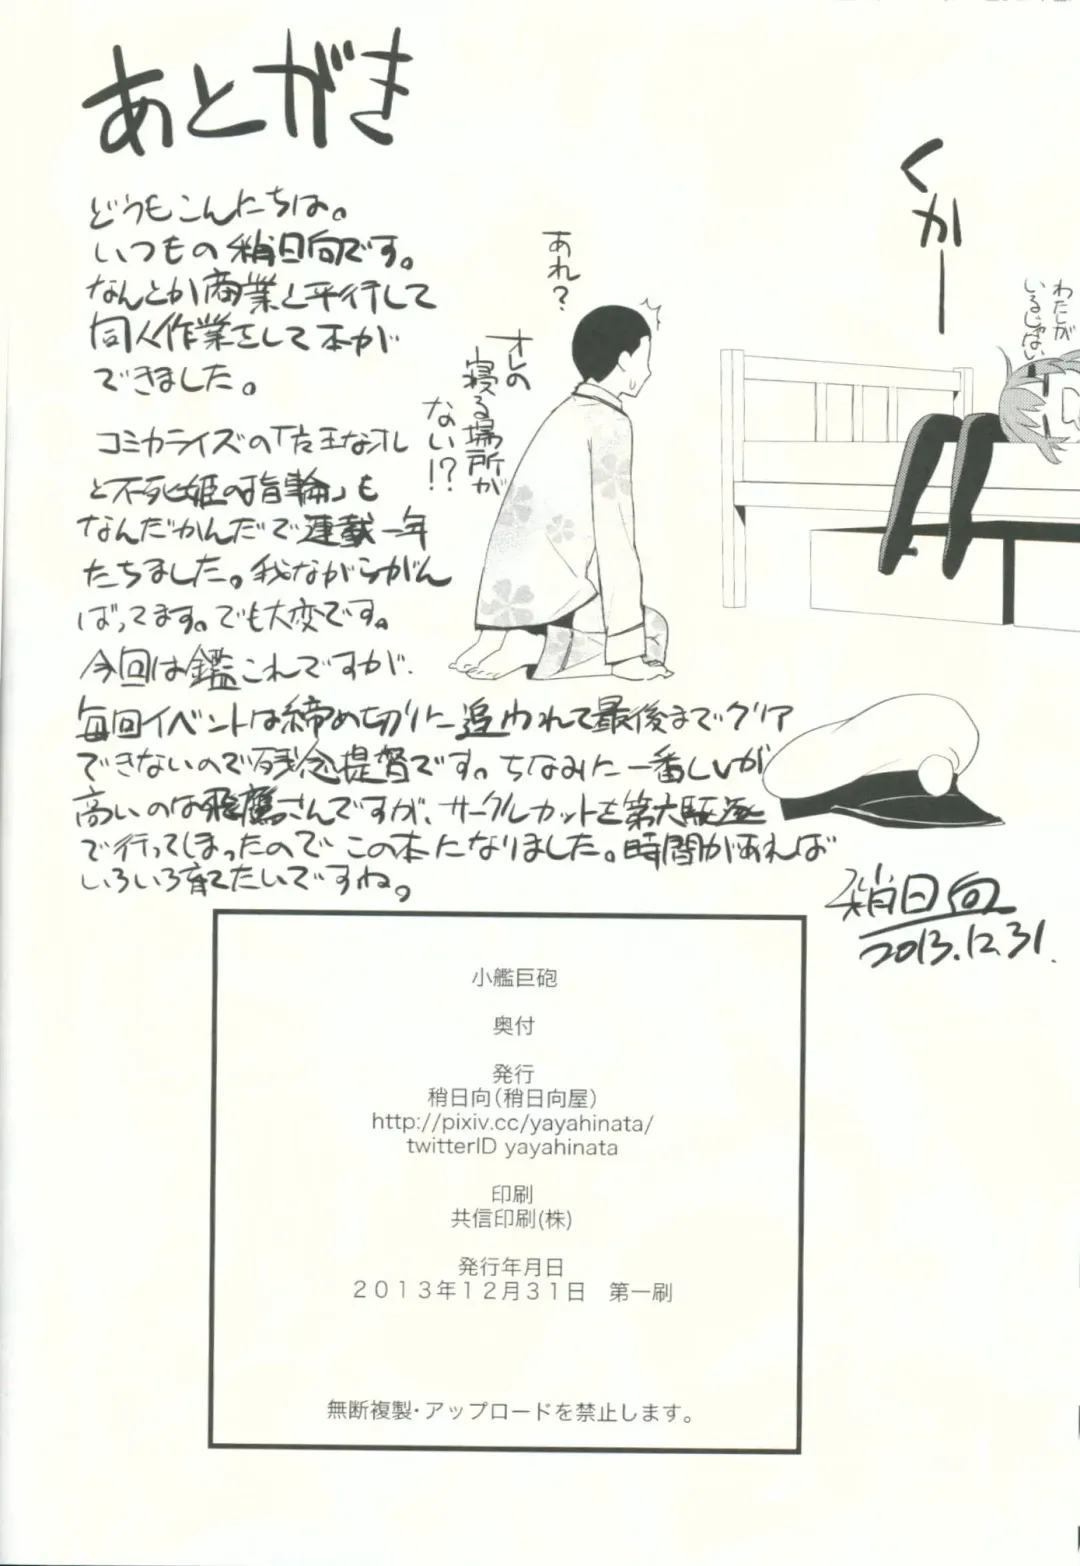 あとがき
どうもこんにちは。
いつもの稍日向です。
なんとか商業と平行して
同人作業をして本が
できました。
コミカライズの「女王なオレ
と不死姫の指輪」も
なんだかんだで連載一年
たちました。我ながらがん
ばってます。でも大変です。
今回は鑑これですが、
毎回イベントは締め切りに追われて最後までクリア
できないので残念提督です。ちなみに一番Lvが
高いのは飛鷹さんですが、サークルカットを第六駆逐
で行ってしまったのでこの本になりました。時間があれば
いろいろ育てたいですね。
くかー
わたしが
いるじゃない
あれ?
オレの
寝る場所が
ない!?
稍日向
2013.12.31.
小艦巨砲
奥付
発行
稍日向(稍日向屋)
http://pixiv.cc/yayahinata/
twitterID yayahinata
印刷
共信印刷(株)
発行年月日
2013年12月31日 第一刷
無断複製・アップロードを禁止します。